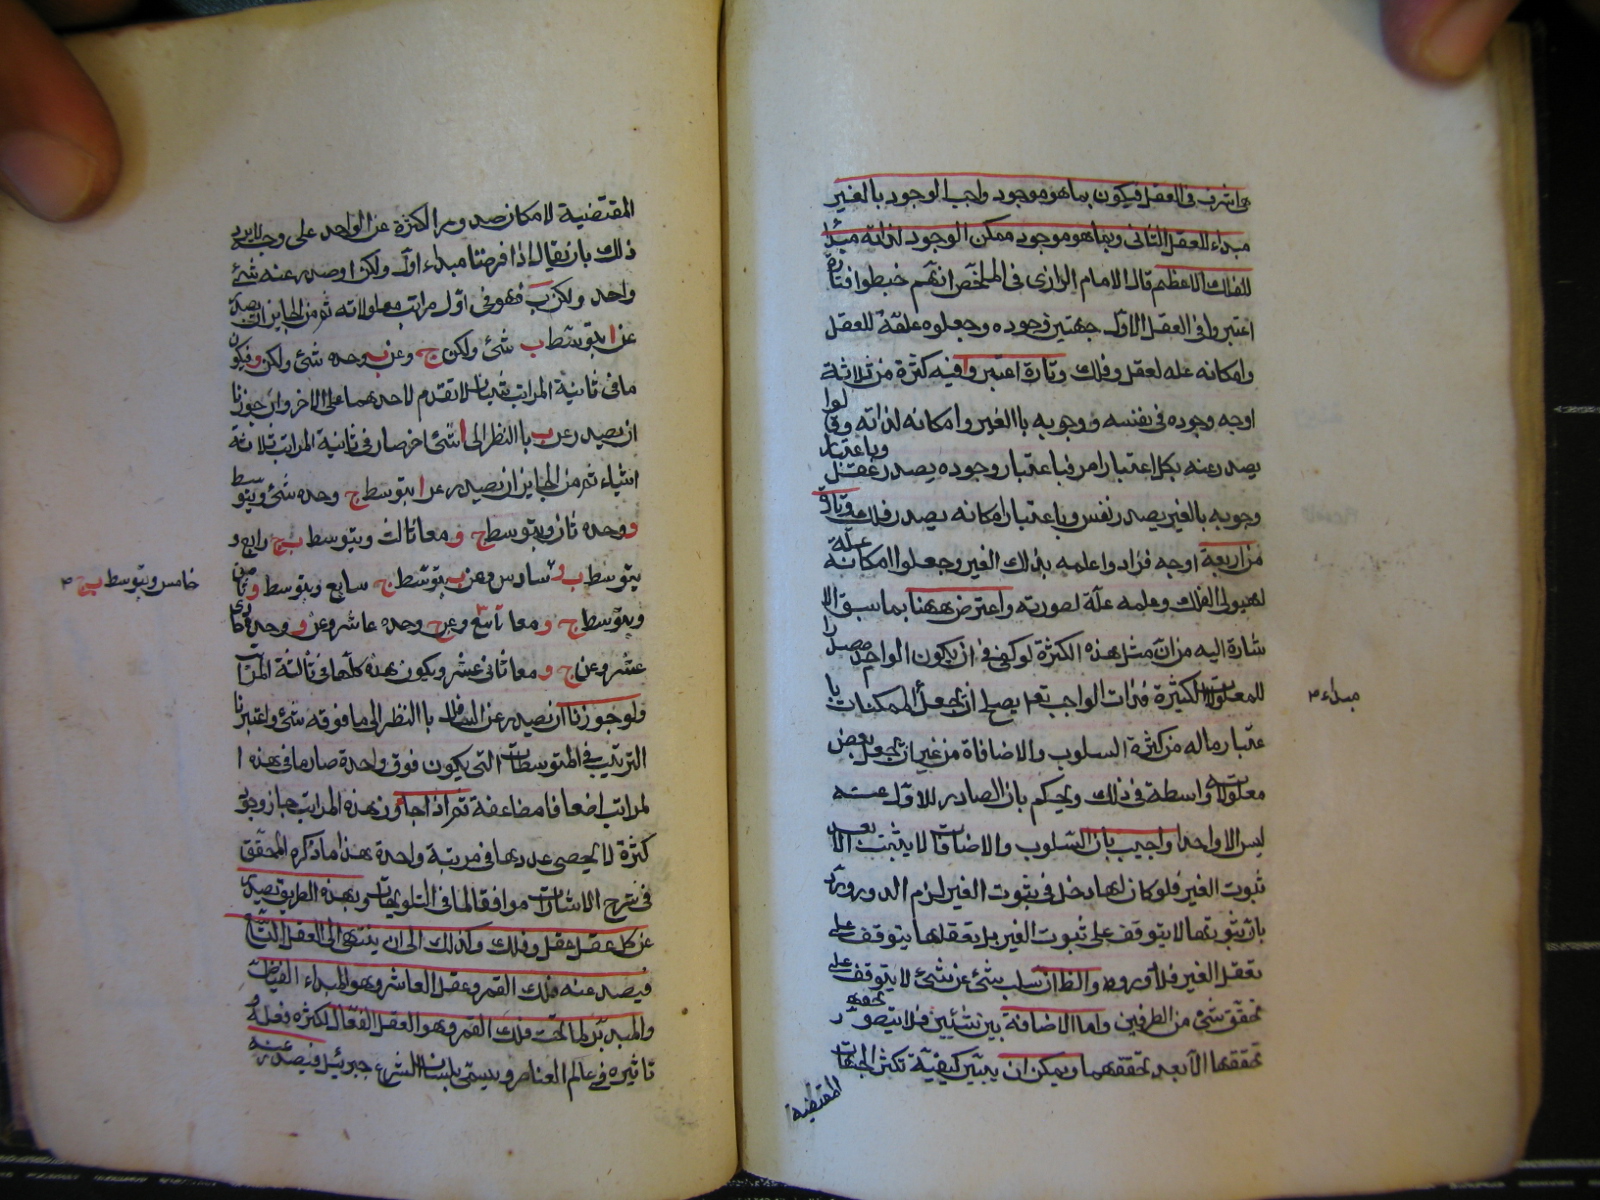 هى اشرف فى العقل فيكون بما هو موجود واجب الوجود بالغير
مبداء للعقل الثانى وبما هو موجود ممكن الوجود لذاته مبدأ
للفلك الاعظم قال الامام الرازى فى الملخص انهم خبطوا فتارة
اعتبروا فى العقل الاول جهتين وجوده وجعلوه علة للعقل
وامكانه علة لعقل وفلك وتارة اعتبروا فيه كثرة من ثلاثة
اوجه وجوده فى نفسه ووجوبه باالغير وامكانه لذاته وقالوا
يصدر عنه بكل اعتبار امر فباعتبار وجوده يصدر عقل وباعتبار
وجوبه بالغير يصدر نفس وباعتبار امكانه يصدر فلك وتارة
من اربعة اوجه فزادوا علمه بذلك الغير وجعلوا امكانه علة
لهيولى الفلك وعلمه علة لصورته واعترض ههنا بما سبق الا
شارة اليه من ان مثل هذه الكثرة لو كفى فى ان يكون الواحد مصدرا
للمعلولات الكثيرة فذات الواجب تعم يصلح ان يجعل للممكنات با
مبداء
عتبار ماله من كثرة السلوب والاضافاة من غير ان يجعل بعض
معلولاته واسطة فى ذلك ويحكم بان الصادر للاول عنه
ليس الا واحدا واجيب بان السلوب والاضافات لا يثبت الا بعد
ثبوت الغير فلو كان لها دخل فى ثبوت الغير لزم الدور ورد
بان ثبوتها لا يتوقف على ثبوت الغير بل تعقلها يتوقف على
تعقل الغير فلا دور وم والظ ان سلب شئ عن شئ لا يتوقف على
تحقق شئ من الطرفين واما الاضافة بين شيئين فلا يتصور
تحققها الا بعد تحققهما ويمكن ان يبين كيفية تكثر الجهات
المقتضية
المقتضية لامكان صدور الكثرة عن الواحد على وجه لا يرد
ذلك بان يقال اذا فرضنا مبداء اول ولكن ا وصدر عنه شئ
واحد ولكن ب فهو فى اول مراتب معلولاته ثم من الجايز ان يصدر
عن ا بتوسط ب شئ ولكن ج وعن ب وحده شئ ولكن و فيكون
ما فى ثانية المراتب شيئان لا تقدم لاحدهما على الاخر وان جوزنا
ان يصدر عن ب باالنظر الى ا شئ اخر صار فى ثانية المراتب ثلاثة
اشياء ثم من الجايز ان يصدر عن ا بتوسط ج وحده شئ وبتوسط
و وحده ثان وبتوسط ج و معا ثالث وبتوسط ب ج رابع و
خامس وبتوسط ب ج
بتوسط ب د سادس وعن ب بتوسط ج سابع وبتوسط و ثامن
وبتوسط ج و معا تاسع وعن ج وحده عاشر وعن و وحده حادى
عشر وعن ج و معا ثانى عشر ويكون هذه كلها فى ثالثة المراتب
ولو جوزنا ان يصدر عن السافل باالنظر الى ما فوقه شئ واعتبرنا
الترتيب فى المتوسطات التى يكون فوق واحدة صار ما فى هذه ا
لمراتب اضعافا مضاعفة ثم اذا جاوزن هذه المراتب جاز وجود
كثرة لا يحصى عددها فى مرتبة واحدة هذا ما ذكره المحقق
فى شرح الاشارات موافقا لما فى التلويحات وبهذه الطريق يصدر
عن كل عقل عقل وفلك وكذلك الى ان ينتهى الى العقل التاسع
فيصدر عنه فلك القمر وعقل العاشر وهو المبداء الفياض
والمدبر لما تحت فلك القمر وهو العقل الفعال لكثرة فعله و
تاثيره فى عالم العناصر ويسمى بلسان الشرع جبرئيل فيصدر عنه